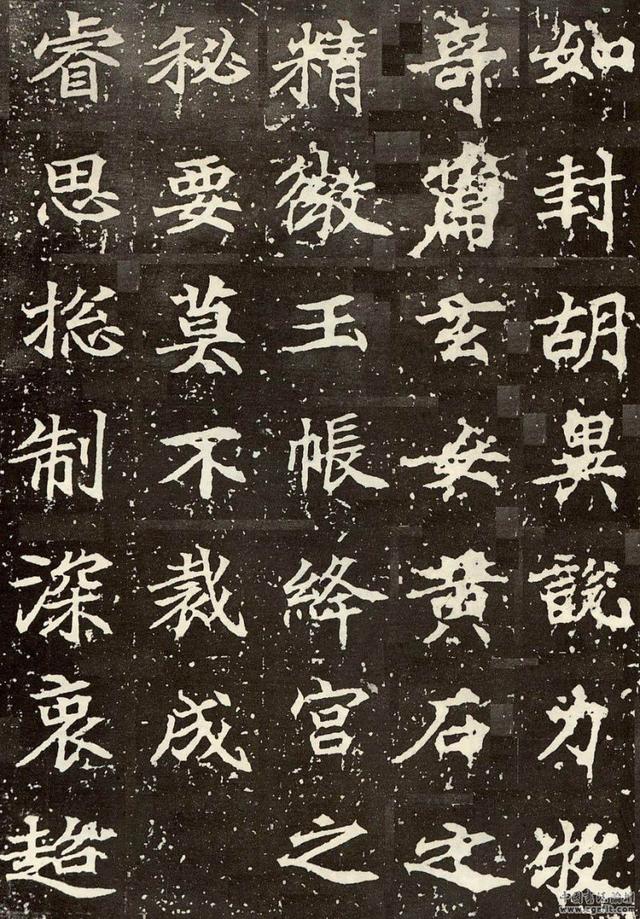 如封胡異說力牧
奇篇玄女黄石之
精微玉帳絳宮之
秘要莫不裁成
睿思摠制深衷超